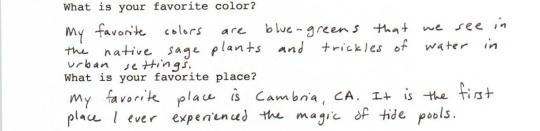 What is your favorite color?
My favorite colors are blue-greens that we see in
the native sage plants and trickles of water in
urban settings.
What is your favorite place?
My favorite place is Cambria, CA. It is the first
place I ever experienced the magic of tide pools.